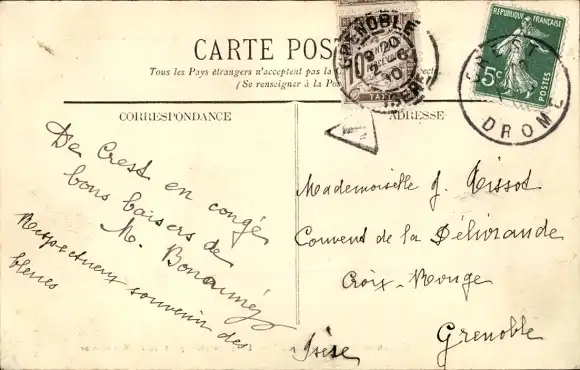 CARTE POST
Tous les Pays étrangers n'acceptent pas la
(Se renseigner à la Pos
CORRESPONDANCE
ADRESSE
GRENOBLE
9 20
2 - 6
10
ISERE
10
TAXE
T
REPUBLIQUE FRANÇAISE
5c
POSTES
CREST
DROME
De Crest en congé
bons baisers de
M.
Respectueux souvenir des
bleues
Mademoiselle J. Tissot
Couvent de la Délivrande
Croix-Rouge
Grenoble
Isère